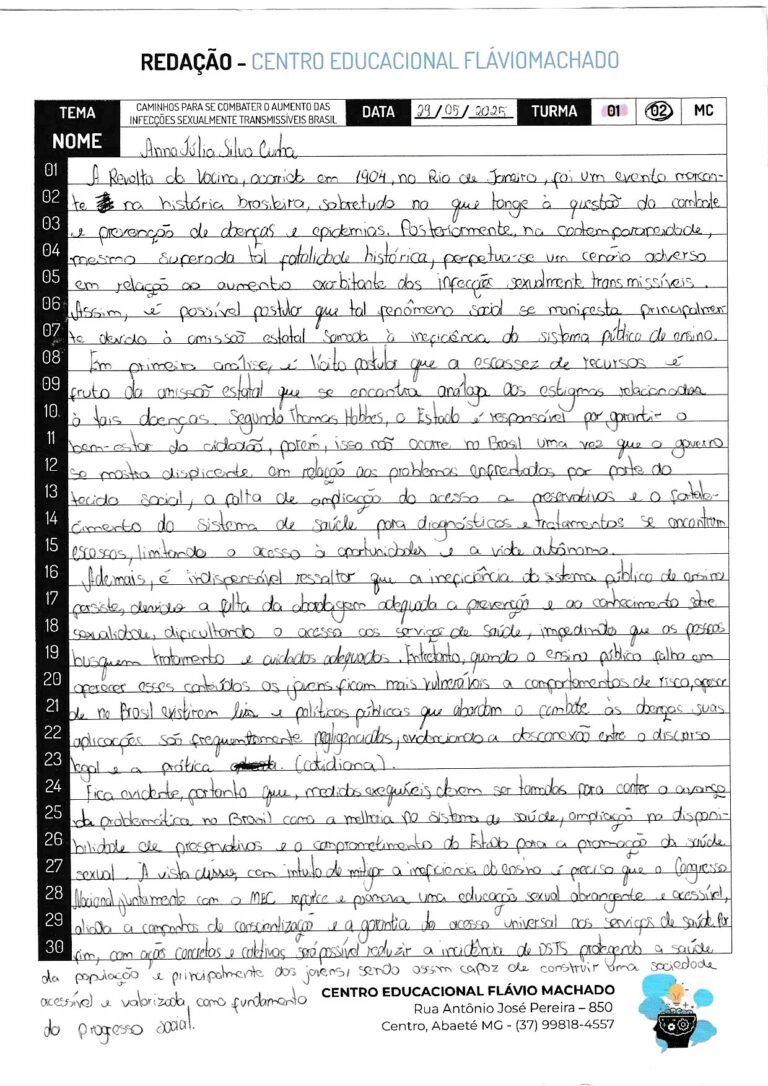 REDAÇÃO - CENTRO EDUCACIONAL FLÁVIOMACHADO
TEMA CAMINHOS PARA SE COMBATER O AUMENTO DAS INFECÇÕES SEXUALMENTE TRANSMISSÍVEIS BRASIL DATA 29/05/2025 TURMA 01 02 MC
NOME Anna Júlia Silva Cunha
01 A Revolta da Vacina, ocorrida em 1904, no Rio de Janeiro, foi um evento marcan-
02 te na história brasileira, sobretudo no que tange à questão do combate
03 e prevenção de doenças e epidemias. Posteriormente, na contemporaneidade,
04 mesmo superada tal fatalidade histórica, perpetua-se um cenário adverso
05 em relação ao aumento exorbitante das infecções sexualmente transmissíveis.
06 Assim, é possível postular que tal fenômeno social se manifesta principalmen-
07 te devido à omissão estatal somada à ineficiência do sistema público de ensino.
08 Em primeira análise, é lícito postular que a escassez de recursos é
09 fruto da omissão estatal que se encontra análoga aos estigmas relacionados
10 à tais doenças. Segundo Thomas Hobbes, o Estado é responsável por garantir o
11 bem-estar do cidadão, porém, isso não ocorre no Brasil uma vez que o governo
12 se mostra displicente em relação aos problemas enfrentados por parte do
13 tecido social, a falta de ampliação do acesso a preservativos e o fortale-
14 cimento do sistema de saúde para diagnósticos e tratamentos se encontram
15 escassos, limitando o acesso à oportunidades e a vida autônoma.
16 Ademais, é indispensável ressaltar que a ineficiência do sistema público de ensino
17 persiste, devido a falta da abordagem adequada a prevenção e ao conhecimento sobre
18 sexualidade, dificultando o acesso aos serviços de saúde, impedindo que as pessoas
19 busquem tratamento e cuidados adequados. Entretanto, quando o ensino público falha em
20 oferecer esses conteúdos os jovens ficam mais vulneráveis a comportamentos de risco, apesar
21 de no Brasil existirem leis e políticas públicas que abordam o combate às doenças suas
22 aplicações são frequentemente negligenciadas, evidenciando a desconexão entre o discurso
23 legal e a prática (cotidiana).
24 Fica evidente, portanto que, medidas exequíveis devem ser tomadas para conter o avanço
25 da problemática no Brasil como a melhoria no sistema de saúde, ampliação na disponi-
26 bilidade de preservativos e o comprometimento do Estado para a promoção da saúde
27 sexual. À vista disso, com intuito de mitigar a ineficiência do ensino é preciso que o Congresso
28 Nacional juntamente com o MEC reforce e promova uma educação sexual abrangente e acessível,
29 aliada a campanhas de conscientização e a garantia do acesso universal aos serviços de saúde. Por
30 fim, com ações concretas e coletivas será possível reduzir a incidência de DSTS protegendo a saúde
da população e principalmente dos jovens, sendo assim capaz de construir uma sociedade
acessível e valorizada, como fundamento
do progresso social.
CENTRO EDUCACIONAL FLÁVIO MACHADO
Rua Antônio José Pereira – 850
Centro, Abaeté MG - (37) 99818-4557